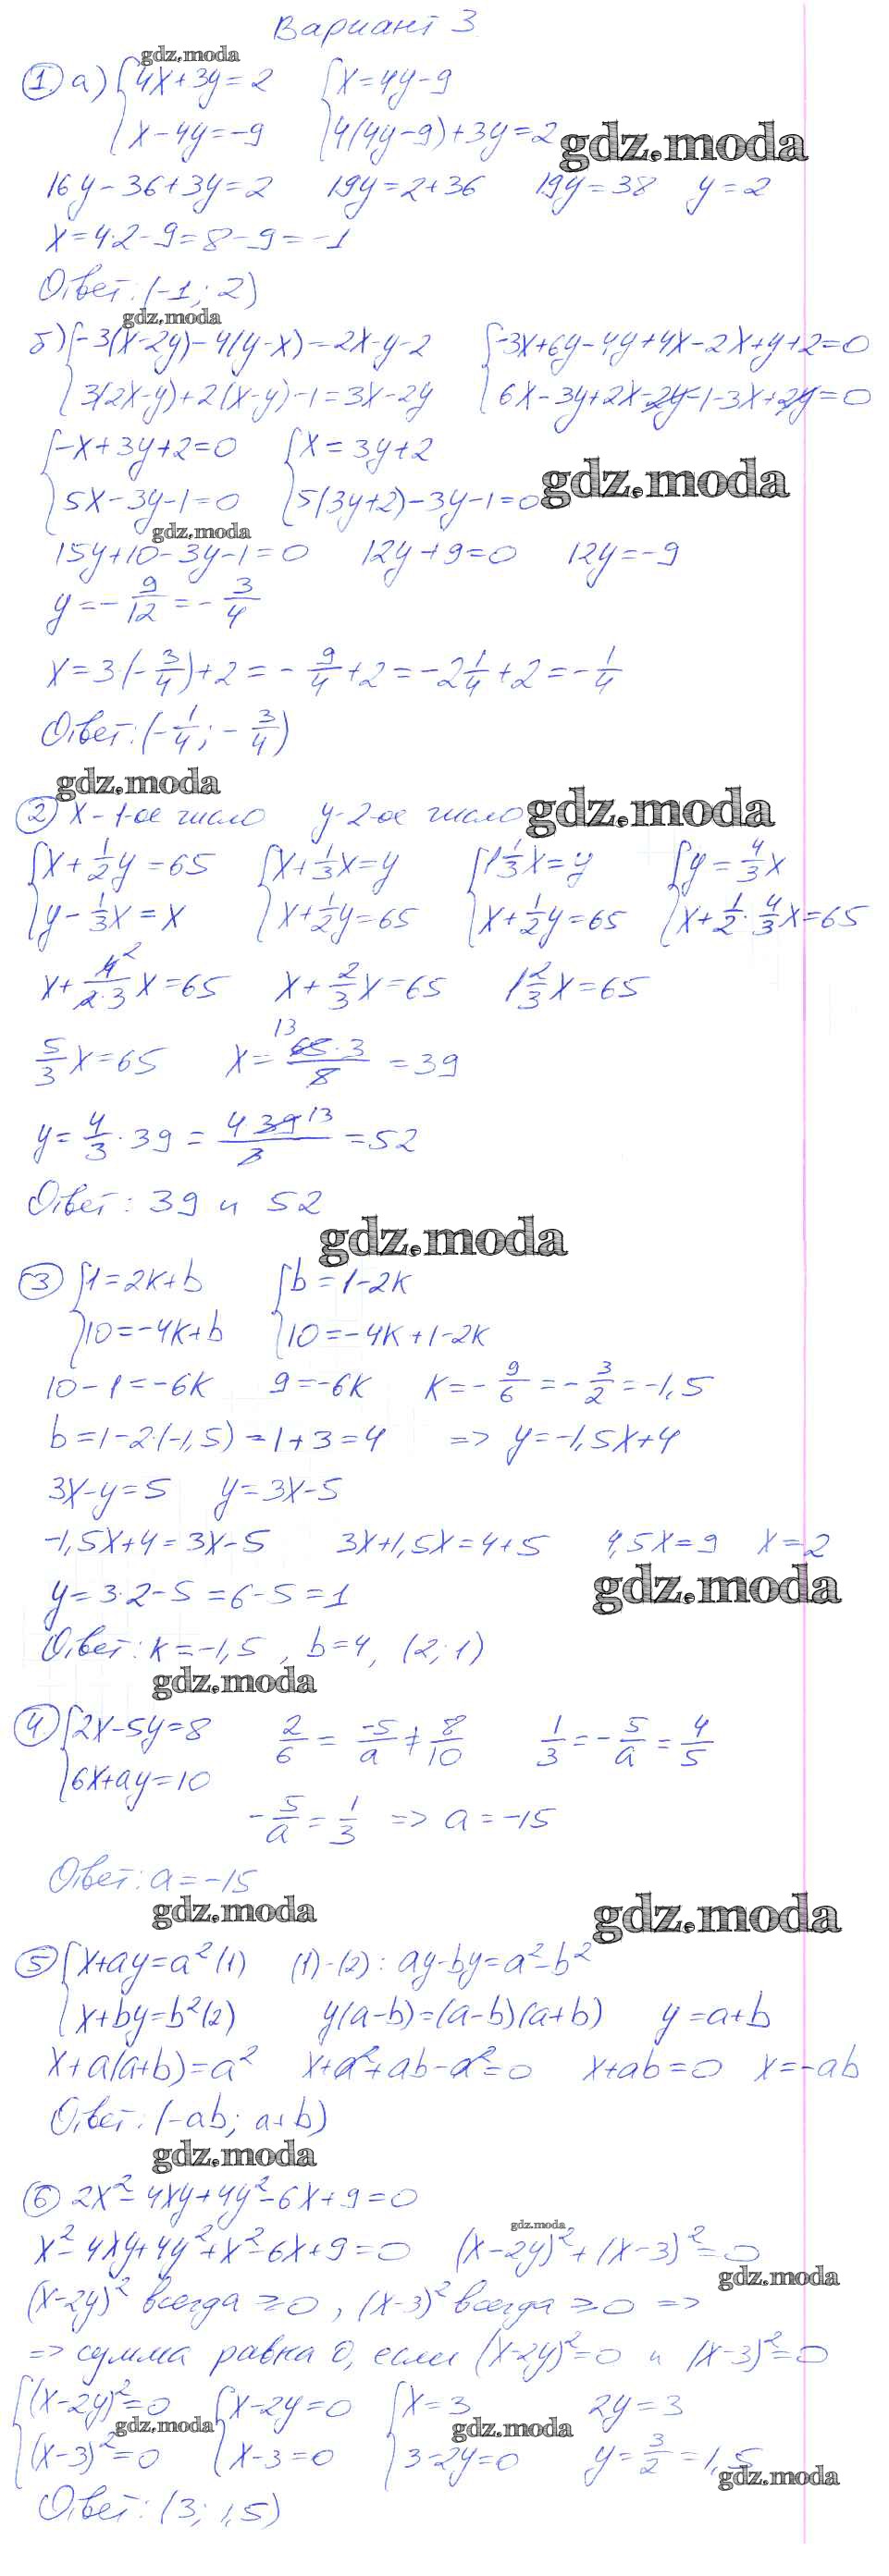 Вариант 3
gdz.moda
① а) {4x+3y=2 {x=4y-9
{x-4y=-9 {4(4y-9)+3y=2 gdz.moda
16y-36+3y=2 19y=2+36 19y=38 y=2
x=4·2-9=8-9=-1
Ответ: (-1; 2)
gdz.moda
б) {-3(x-2y)-4(y-x)=2x-y-2 {-3x+6y-4y+4x-2x+y+2=0
{3(2x-y)+2(x-y)-1=3x-2y {6x-3y+2x-2y-1-3x+2y=0
{-x+3y+2=0 {x=3y+2
{5x-3y-1=0 {5(3y+2)-3y-1=0 gdz.moda
gdz.moda
15y+10-3y-1=0 12y+9=0 12y=-9
y=-9/12=-3/4
x=3·(-3/4)+2=-9/4+2=-2 1/4+2=-1/4
Ответ: (-1/4; -3/4)
gdz.moda
② x-1-ое число y-2-ое число gdz.moda
{x+1/2y=65 {x+1/3x=y {1 1/3x=y {y=4/3x
{y-1/3x=x {x+1/2y=65 {x+1/2y=65 {x+1/2·4/3x=65
x+4²/2·3x=65 x+2/3x=65 1 2/3x=65
5/3x=65 x=13 65·3/5=39
y=4/3·39=4 39 13/3=52
Ответ: 39 и 52
gdz.moda
③ {1=2k+b {b=1-2k
{10=-4k+b {10=-4k+1-2k
10-1=-6k 9=-6k k=-9/6=-3/2=-1,5
b=1-2·(-1,5)=1+3=4 => y=-1,5x+4
3x-y=5 y=3x-5
-1,5x+4=3x-5 3x+1,5x=4+5 4,5x=9 x=2
gdz.moda
y=3·2-5=6-5=1
Ответ: k=-1,5, b=4, (2; 1)
gdz.moda
④ {2x-5y=8 2/6=-5/a≠8/10 1/3=-5/a=4/5
{6x+ay=10
-5/a=1/3 => a=-15
Ответ: a=-15
gdz.moda gdz.moda
⑤ {x+ay=a² (1) (1)-(2): ay-by=a²-b²
{x+by=b² (2) y(a-b)=(a-b)(a+b) y=a+b
x+a(a+b)=a² x+a²+ab-a²=0 x+ab=0 x=-ab
Ответ: (-ab; a+b)
gdz.moda
⑥ 2x²-4xy+4y²-6x+9=0
gdz.moda
x²-4xy+4y²+x²-6x+9=0 (x-2y)²+(x-3)²=0
gdz.moda
(x-2y)² всегда ≥0, (x-3)² всегда ≥0 =>
=> сумма равна 0, если (x-2y)²=0 и (x-3)²=0
{(x-2y)²=0 {x-2y=0 {x=3 2y=3
gdz.moda gdz.moda
{(x-3)²=0 {x-3=0 {3-2y=0 y=3/2=1,5
gdz.moda
Ответ: (3; 1,5)